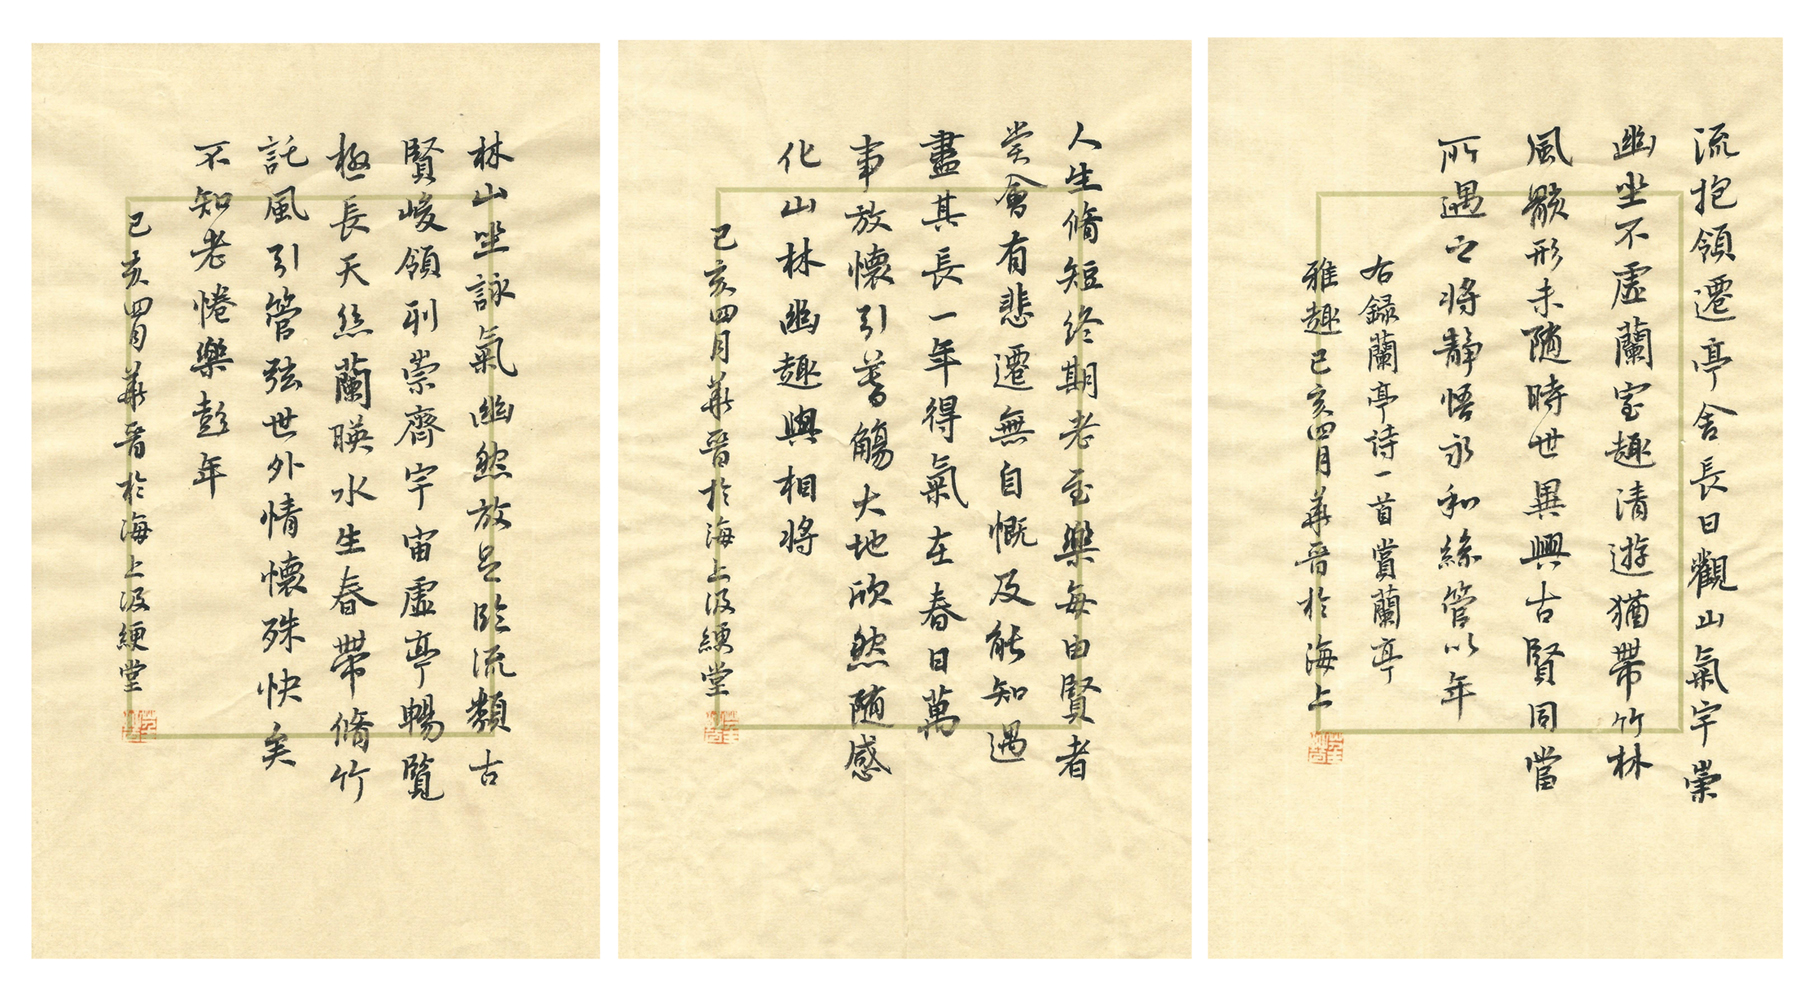 流抱領遷亭舍長日觀山氣宇崇
幽坐不虛蘭室趣清遊猶帶竹林
風骸形未隨時世異興古賢同當
所遇之將靜悟永和絲管以年
右録蘭亭詩一首賞蘭亭
雅趣己亥四月華晉於海上
人生脩短終期老至樂每由賢者
當會有悲遷無自慨及能知遇
盡其長一年得氣在春日萬
事放懷引昔觴大地欣然隨感
化山林幽趣與相將
己亥四月華晉於海上汲綆堂
林山坐詠氣幽然放足臨流類古
賢峻領列崇齊宇宙虛亭暢覽
極長天絲蘭映水生春帶脩竹
託風引管弦世外情懷殊快矣
不知老惓樂彭年
己亥四月華晉於海上汲綆堂